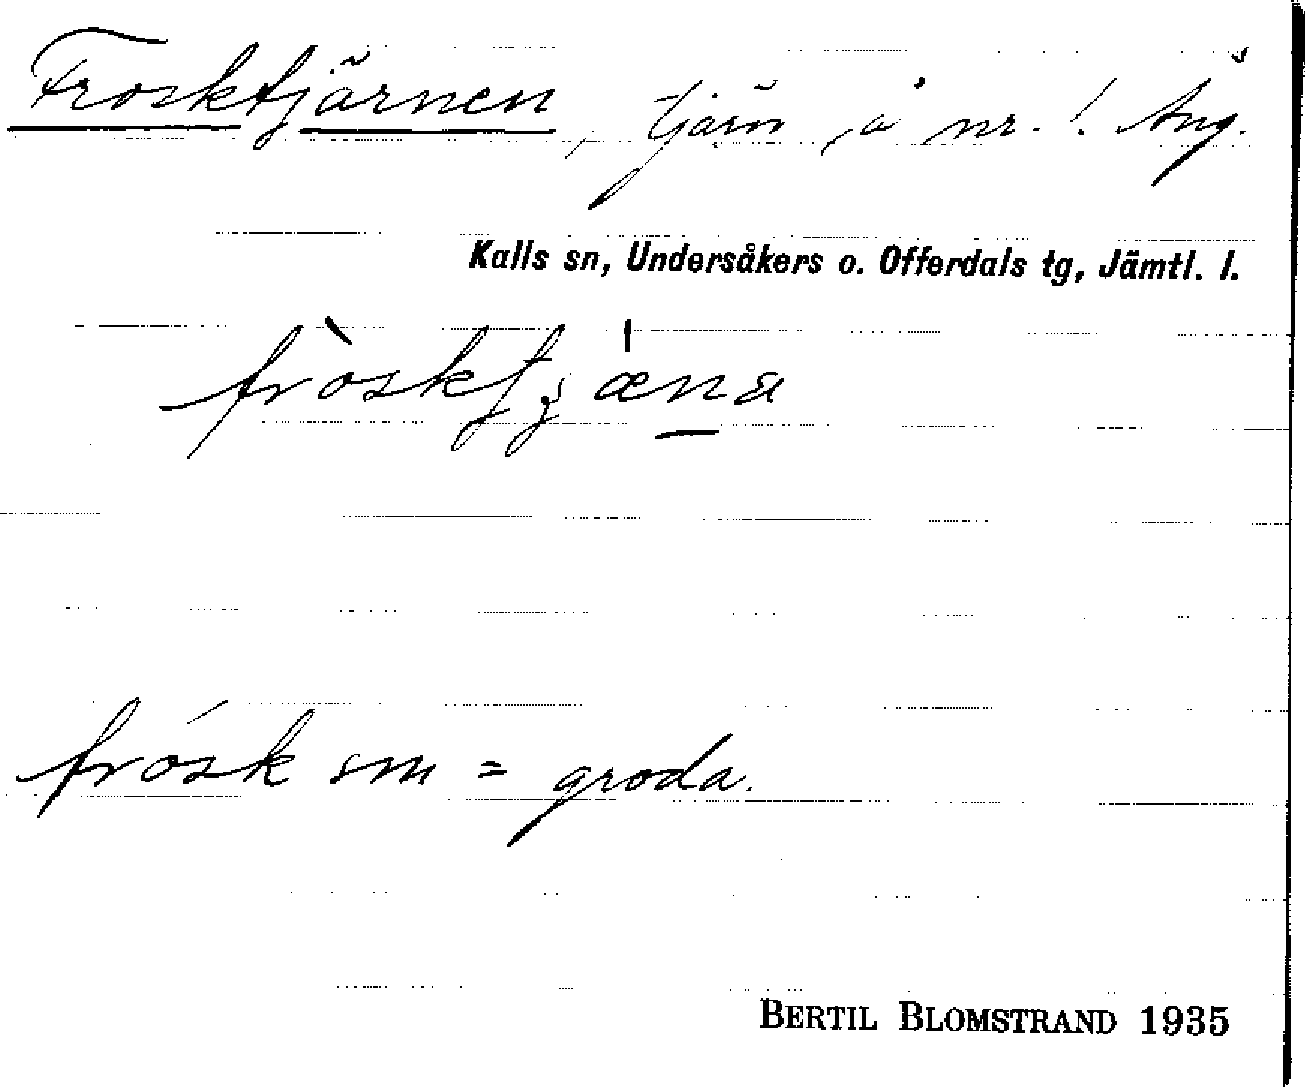 Frosktjärnen, tjärn å nr. 1 Äng.
Kalls sn, Undersåkers o. Offerdals tg, Jämtl. l.
frósk sm = groda.
BERTIL BLOMSTRAND 1935